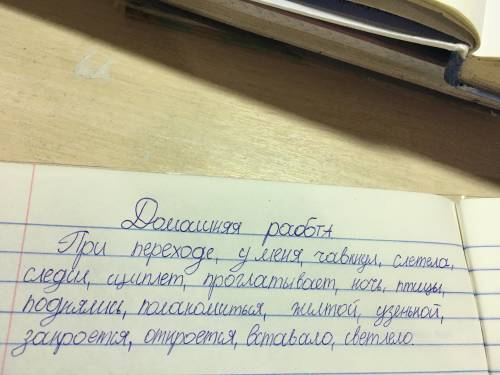 Домашняя рабоtа
При переходе, у меня, чавкнул, слетела,
следил, щиплет, проглатывает, ночь, птицы,
поднялись, полакомиться, жёлтой, узенькой,
закроется, откроется, вставало, светлело.